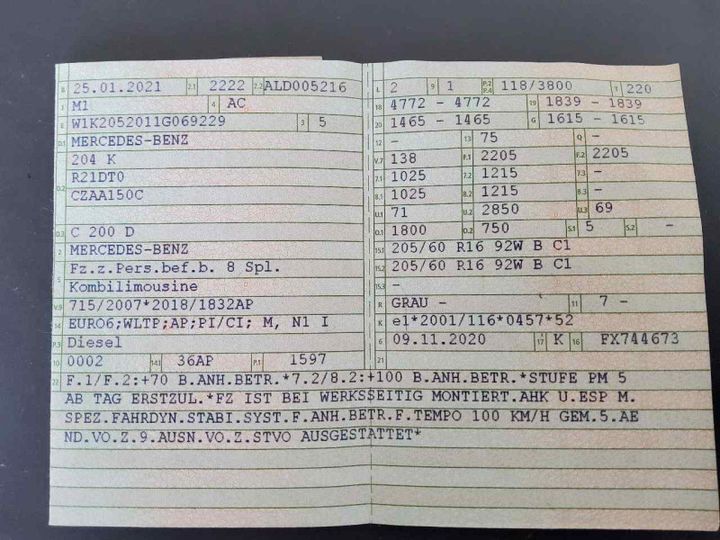 B 25.01.2021 2.1 2222 2.2 ALD005216
J M1 4 AC
E W1K2052011G069229 3 5
D.1 MERCEDES-BENZ
204 K
R21DT0
D.2 CZAA150C
D.3 C 200 D
2 MERCEDES-BENZ
Fz.z.Pers.bef.b. 8 Spl.
5 Kombilimousine
V.9 715/2007*2018/1832AP
14 EURO6;WLTP;AP;PI/CI; M, N1 I
P.3 Diesel
10 0002 14.1 36AP P.1 1597
L 2 9 1 P.2 P.4 118/3800 T 220
18 4772 - 4772 19 1839 - 1839
20 1465 - 1465 G 1615 - 1615
12 - 13 75 Q -
V.7 138 F.1 2205 F.2 2205
7.1 1025 7.2 1215 7.3 -
8.1 1025 8.2 1215 8.3 -
U.1 71 U.2 2850 U.3 69
O.1 1800 O.2 750 S.1 5 S.2 -
15.1 205/60 R16 92W B C1
15.2 205/60 R16 92W B C1
15.3 -
R GRAU - 11 7 -
K e1*2001/116*0457*52
6 09.11.2020 17 K 16 FX744673
21
22 F.1/F.2:+70 B.ANH.BETR.*7.2/8.2:+100 B.ANH.BETR.*STUFE PM 5
AB TAG ERSTZUL.*FZ IST BEI WERKSSEITIG MONTIERT.AHK U.ESP M.
SPEZ.FAHRDYN.STABI.SYST.F.ANH.BETR.F.TEMPO 100 KM/H GEM.5.AE
ND.VO.Z.9.AUSN.VO.Z.STVO AUSGESTATTET*